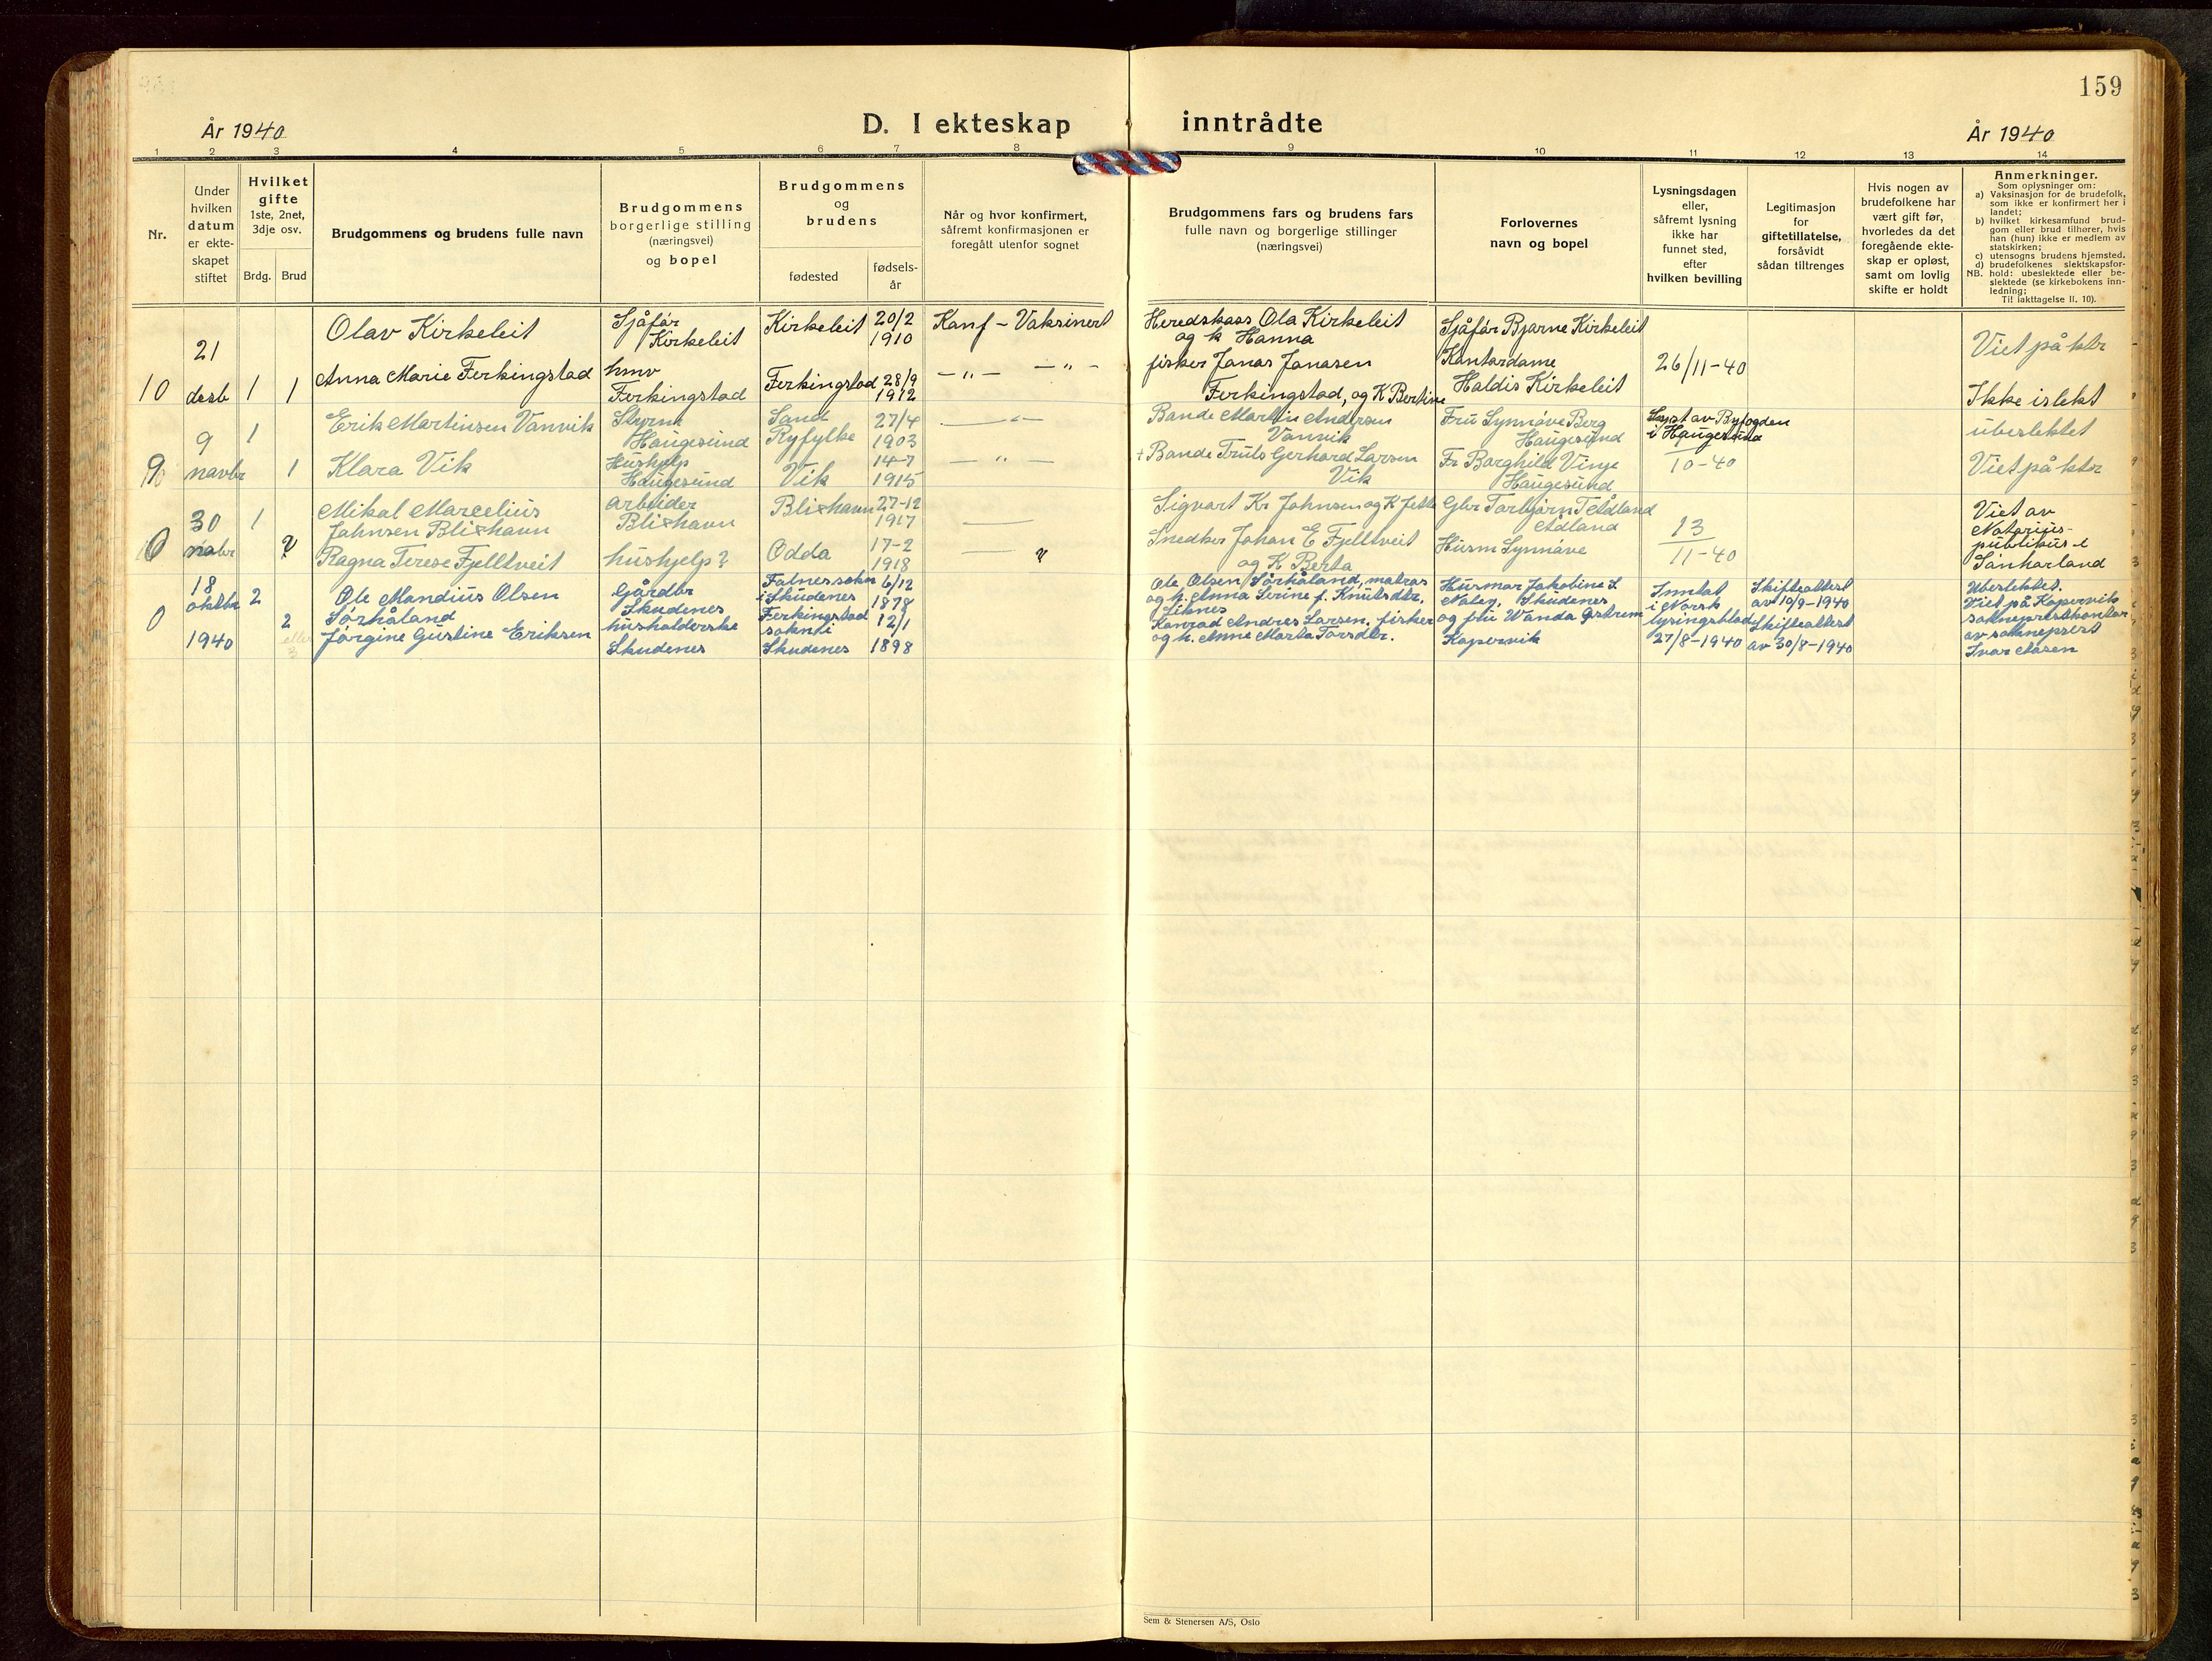 159
År 1940
D. I ekteskap inntrådte
År 1940
1 2 3 4 5 6 7 8 9 10 11 12 13 14
Nr.
Under
hvilken
datum
er ekte-
skapet
stiftet
Hvilket
gifte
1ste, 2net,
3dje osv.
Brdg. Brud
Brudgommens og brudens fulle navn
Brudgommens
borgerlige stilling
(næringsvei)
og bopel
Brudgommens
og
brudens
fødested
fødsels-
år
Når og hvor konfirmert,
såfremt konfirmasjonen er
foregått utenfor sognet
Brudgommens fars og brudens fars
fulle navn og borgerlige stillinger
(næringsvei)
Forlovernes
navn og bopel
Lysningsdagen
eller,
såfremt lysning
ikke har
funnet sted,
efter
hvilken bevilling
Legitimasjon
for
giftetillatelse,
forsåvidt
sådan tiltrenges
Hvis nogen av
brudefolkene har
vært gift før,
hvorledes da det
foregående ekte-
skap er opløst,
samt om lovlig
skifte er holdt
Anmerkninger.
Som oplysninger om:
a) Vaksinasjon for de brudefolk,
som ikke er konfirmert her i
landet;
b) hvilket kirkesamfund brud-
gom eller brud tilhører, hvis
han (hun) ikke er medlem av
statskirken;
c) utensogns brudens hjemsted.
d) brudefolkenes slektskapsfor-
NB. hold: ubeslektede eller be-
slektede (se kirkebokens inn-
ledning;
Til iakttagelse II. 10).
10
21
desb
1 1
Olav Kirkeleit
Anna Marie Ferkingstad
Sjåfør
Kirkeleit
hmv
Ferkingstad
Kirkeleit
20/2
1910
Ferkingstad
28/9
1912
Konf - Vaksinert
-"- -"-
Heredskass Ola Kirkeleit
og k Hanna
fisker Jonas Jonasen
Ferkingstad, og K Bertine
Sjåfør Bjarne Kirkeleit
Kontordame
Haldis Kirkeleit
26/11-40
Viet på ktr
Ikke i slekt
9
novbr
1 1
Erik Martinsen Vanvik
Klara Vik
Styrm
Haugesund
Hushjelp
Haugesund
Sand
Ryfylke
27/4
1903
Vik
14-7
1915
Bonde Martin Andersen
Vanvik
+ Bonde Truls Gerhard Larsen
Vik
Fru Synnøve Berg
Haugesund
Fr Borghild Vinje
Haugesund
Lyst av Byfogden
i Haugesund
10-40
ubeslektet
Viet på ktr
0
30
novbr
1 ?
Mikal Marcelius
Johnsen Blixhavn
Ragna Terese Fjelltveit
Arbeider
Blixhavn
hushjelp?
Blixhavn
27-12
1917
Odda
17-2
1918
?
Sigvart Kr Johnsen og K Jette
Snedker Johan E Fjelltveit
og K Berta
Gbr Torbjørn T Ådland
Ådland
Husm Synnøve
13
11-40
Viet av
Notarius-
publikus i
Sønhorland
0
18
oktbr
1940
2 2
eller
3
Ole Mandius Olsen
Sørhåland
Jørgine Gustine Eriksen
Gårdbr
Skudenes
husholderske
Skudenes
Falnes sokn
i Skudenes
6/12
1878
Ferkingstad
sokn i
Skudenes
12/1
1898
Ole Olsen Sørhåland, matros
og h. Anna Serine f. Knutsdtr.
Liknes
Konrad Andres Larsen, fisker
og h. Anne Marta Torsdtr.
Husmor Jakobine S.
Naley, Skudenes
og frk Wanda
Kopervik
Inntat
i Norsk
lysingsblad
27/8-1940
Skifteattest
av 10/9-1940
Skifteattest
av 30/8-1940
Ubeslektet.
Viet på Kopervik
sokneprestkontor
av sokneprest
Ivar Åsen
Sem & Stenersen A/S, Oslo